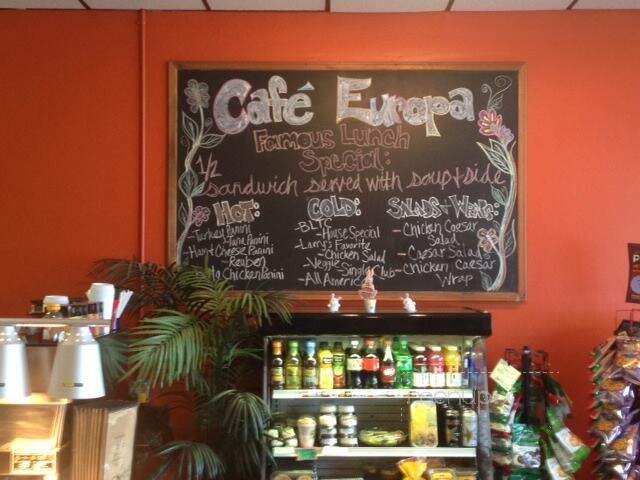 Café Europa
Famous Lunch
Special:
1/2
sandwich served with soup + side
HOT:
Turkey Panini
- Tuna Panini
Ham + Cheese Panini
- Reuben
Chicken Panini
COLD:
- BLTC
- House Special
- Larry's Favorite
- Chicken Salad
- Veggie
- Single Club
- All America
SALADS + Wraps:
- Chicken Caesar
Salad
- Caesar Salad
- Chicken Caesar
Wrap